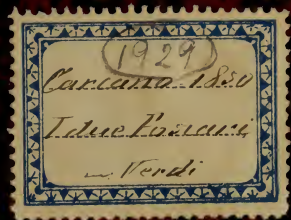 (1929)
Carcano 1850
I due Foscari
Verdi